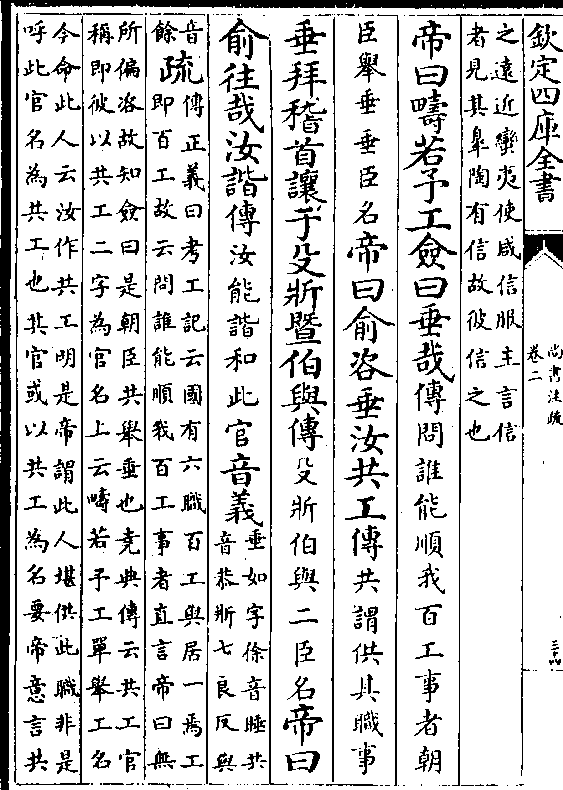 欽定四庫全書
尚書注疏
卷二
之遠近蠻夷使咸信服主言信
者見其臯陶有信故彼信之也
帝曰疇若予工僉曰垂哉傳問誰能順我百工事者朝
臣舉垂垂臣名帝曰俞咨垂汝共工傳共謂供其職事
垂拜稽首讓于殳斨暨伯與傳殳斨伯與二臣名帝曰
俞往哉汝諧傳汝能諧和此官音義
垂如字徐音睡共
音恭斨七良反與
音
餘
疏
傳正義曰考工記云國有六職百工與居一焉工
即百工故云問誰能順我百工事者直言帝曰無
所偏咨故知僉曰是朝臣共舉垂也堯典傳云共工官
稱即彼以共工二字為官名上云疇若予工單舉工名
今命此人云汝作共工明是帝謂此人堪供此職非是
呼此官名為共工也其官或以共工為名要帝意言共